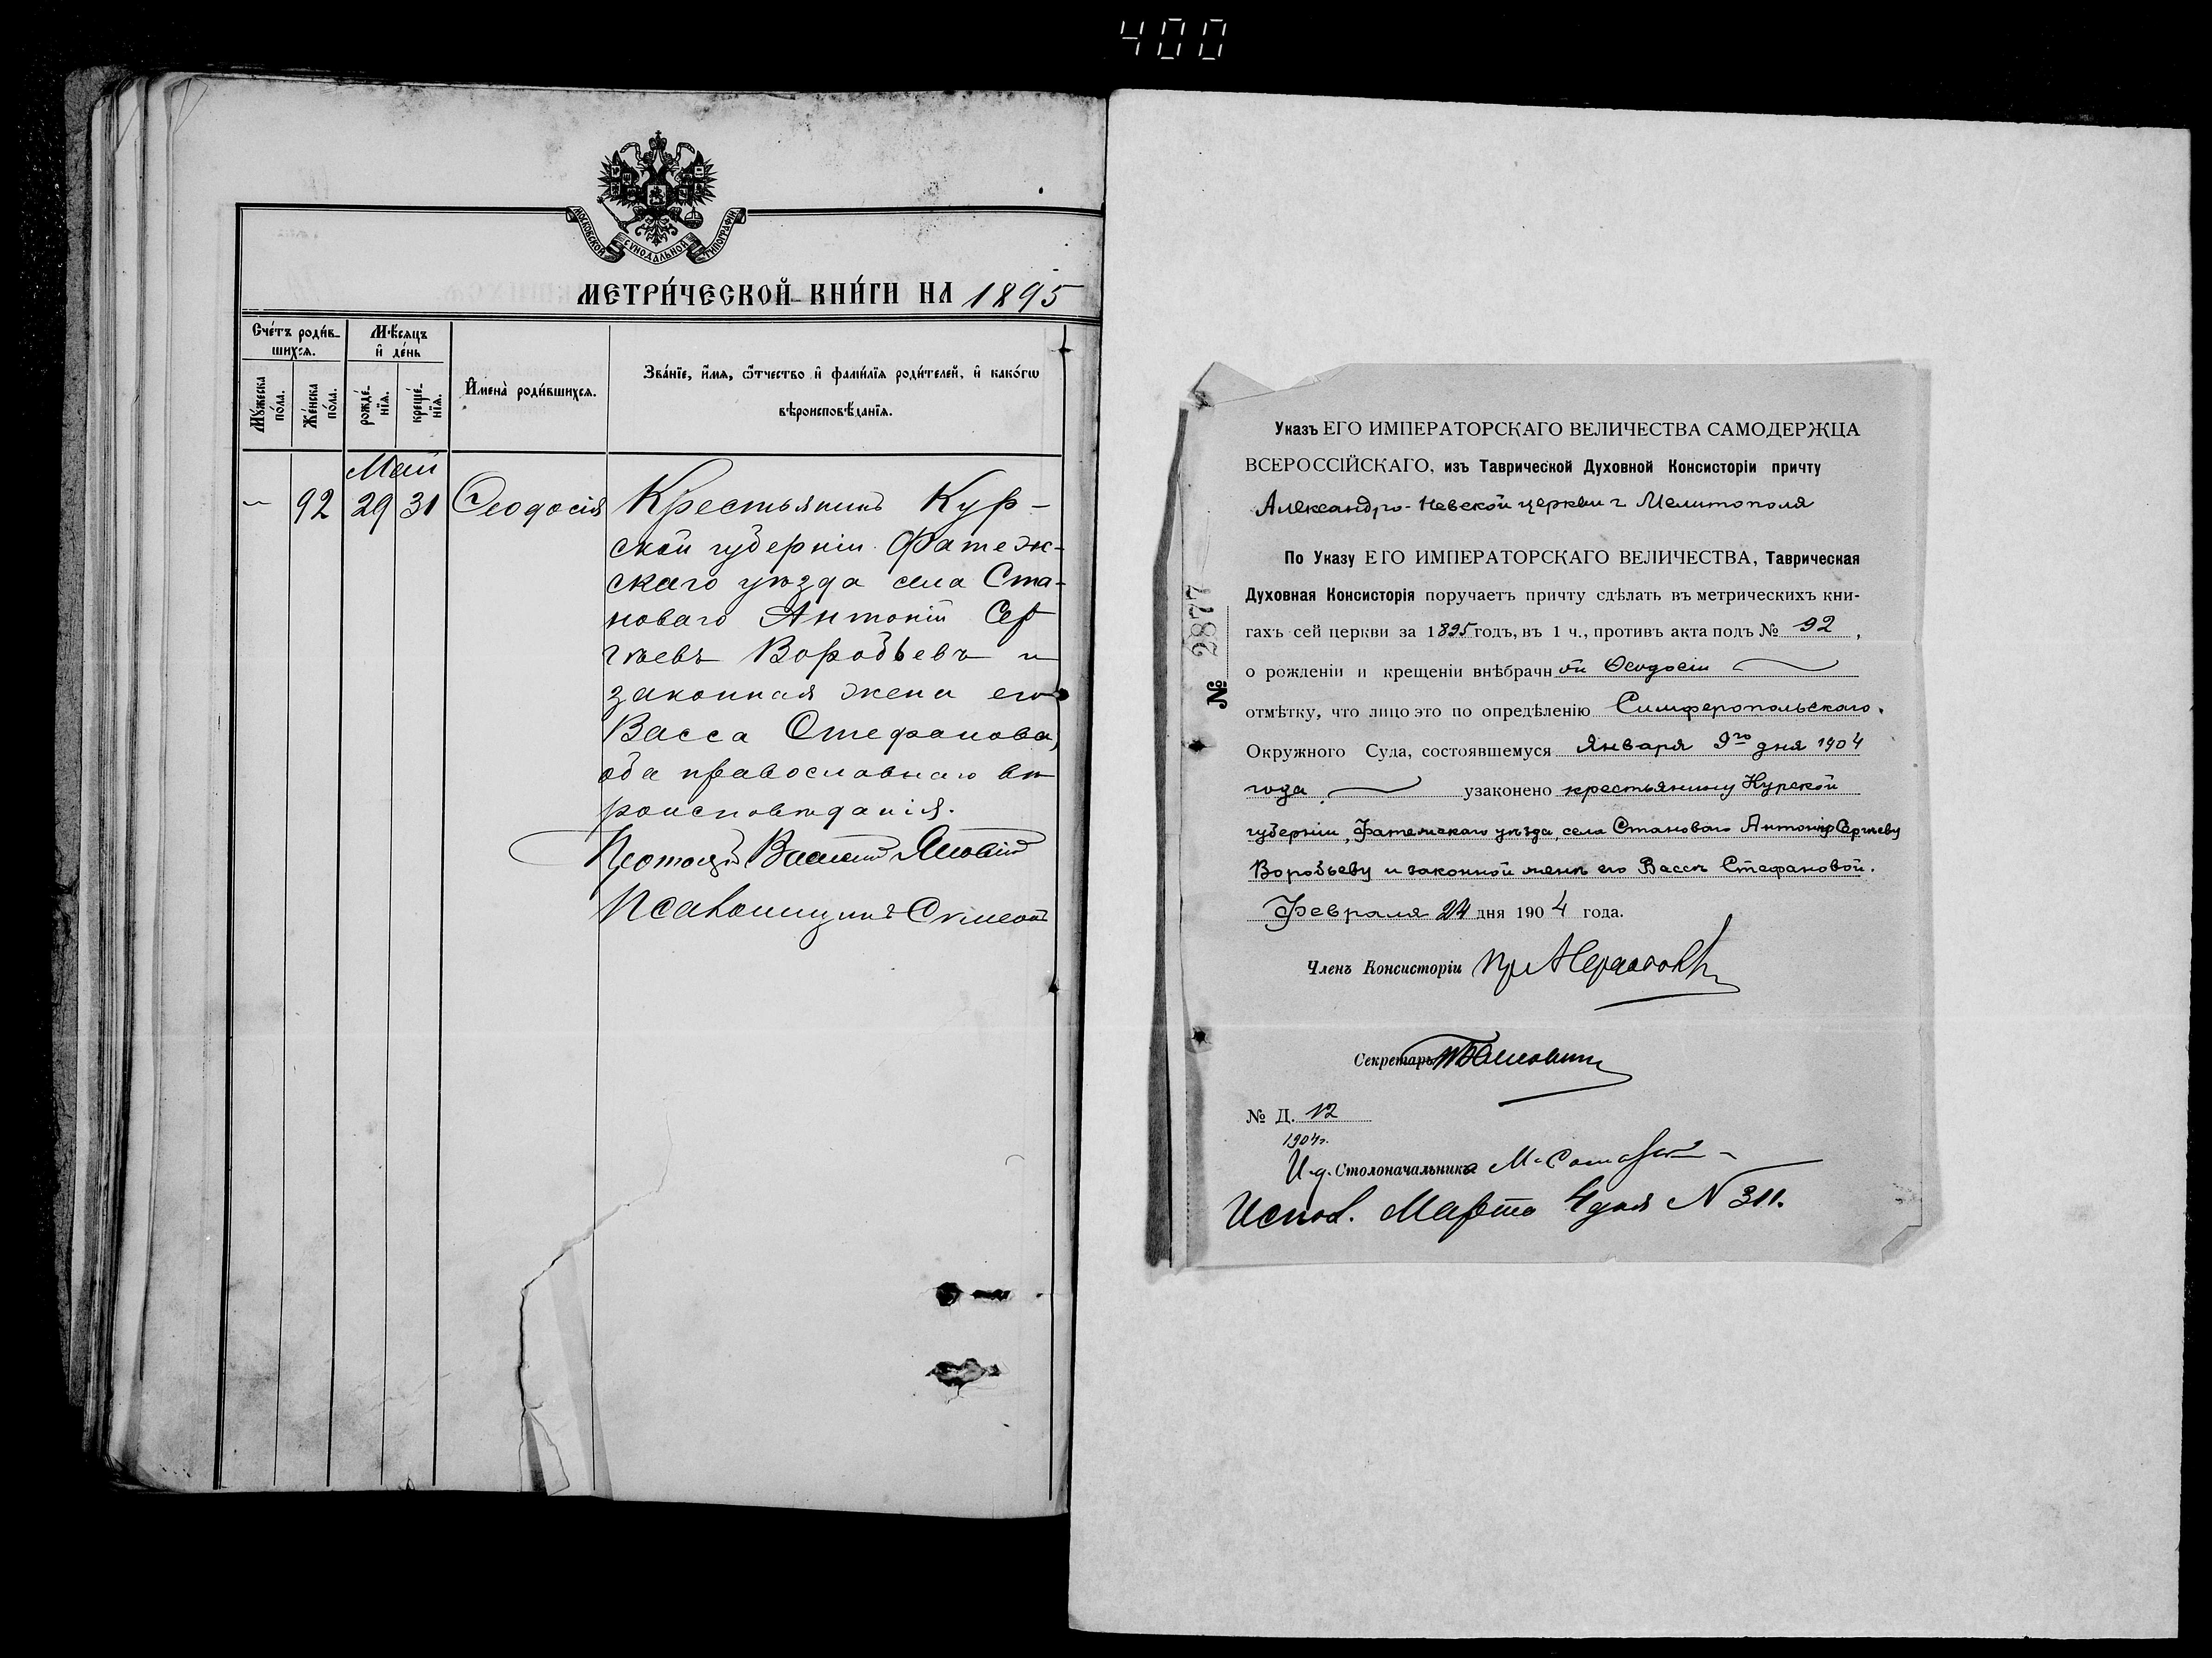 400
МОСКОВСКОЙ СѴНОДАЛЬНОЙ ТИПОГРАФІИ
МЕТРИ́ЧЕСКОЙ КНИ́ГИ НА 1895
Сче́тъ роди́в-
шихся.
Мѣ́сяцъ
и҆ де́нь
Му́жеска по́ла.
Же́нска по́ла.
рожде́-
нїя.
креще́-
нїя.
И҆мена̀ роди́вшихся.
Зва́нїе, и҆́мя, ѻ҆́тчество и҆ фами́лїя роди́телей, и҆ како́гѡ
вѣроисповѣ́данїя.
Май
— 92 29 31 Ѳеодосія Крестьянинъ Кур-
ской губерніи Фатеж-
скаго уѣзда села Ста-
новаго Антоній Сер
гѣевъ Воробьевъ и
законная жена его
Васса Стефанова,
оба православнаго вѣ
роисповѣданія.
Василій
Псаломщикъ
Указъ ЕГО ИМПЕРАТОРСКАГО ВЕЛИЧЕСТВА САМОДЕРЖЦА
ВСЕРОССІЙСКАГО, изъ Таврической Духовной Консисторіи причту
Александро-Невской церкви г Мелитополя
По Указу ЕГО ИМПЕРАТОРСКАГО ВЕЛИЧЕСТВА, Таврическая
Духовная Консисторія поручаетъ причту сдѣлать въ метрическихъ кни-
гахъ сей церкви за 1895 годъ, въ 1 ч., противъ акта подъ № 92,
о рожденіи и крещеніи внѣбрачной Ѳеодосіи
отмѣтку, что лицо это по опредѣленію Симферопольскаго
Окружного Суда, состоявшемуся Января 9го дня 1904
года узаконено крестьянину Курской
губерніи, Фатежскаго уѣзда, села Становаго Антонію Сергѣеву
Воробьеву и законной женѣ его Вассѣ Стефановой.
Февраля 24 дня 1904 года.
Членъ Консисторіи
Секретарь
№ Д. 12
1904г.
И.д. Столоначальника
Испол. Марта 4 дня N 311.
№ 2877